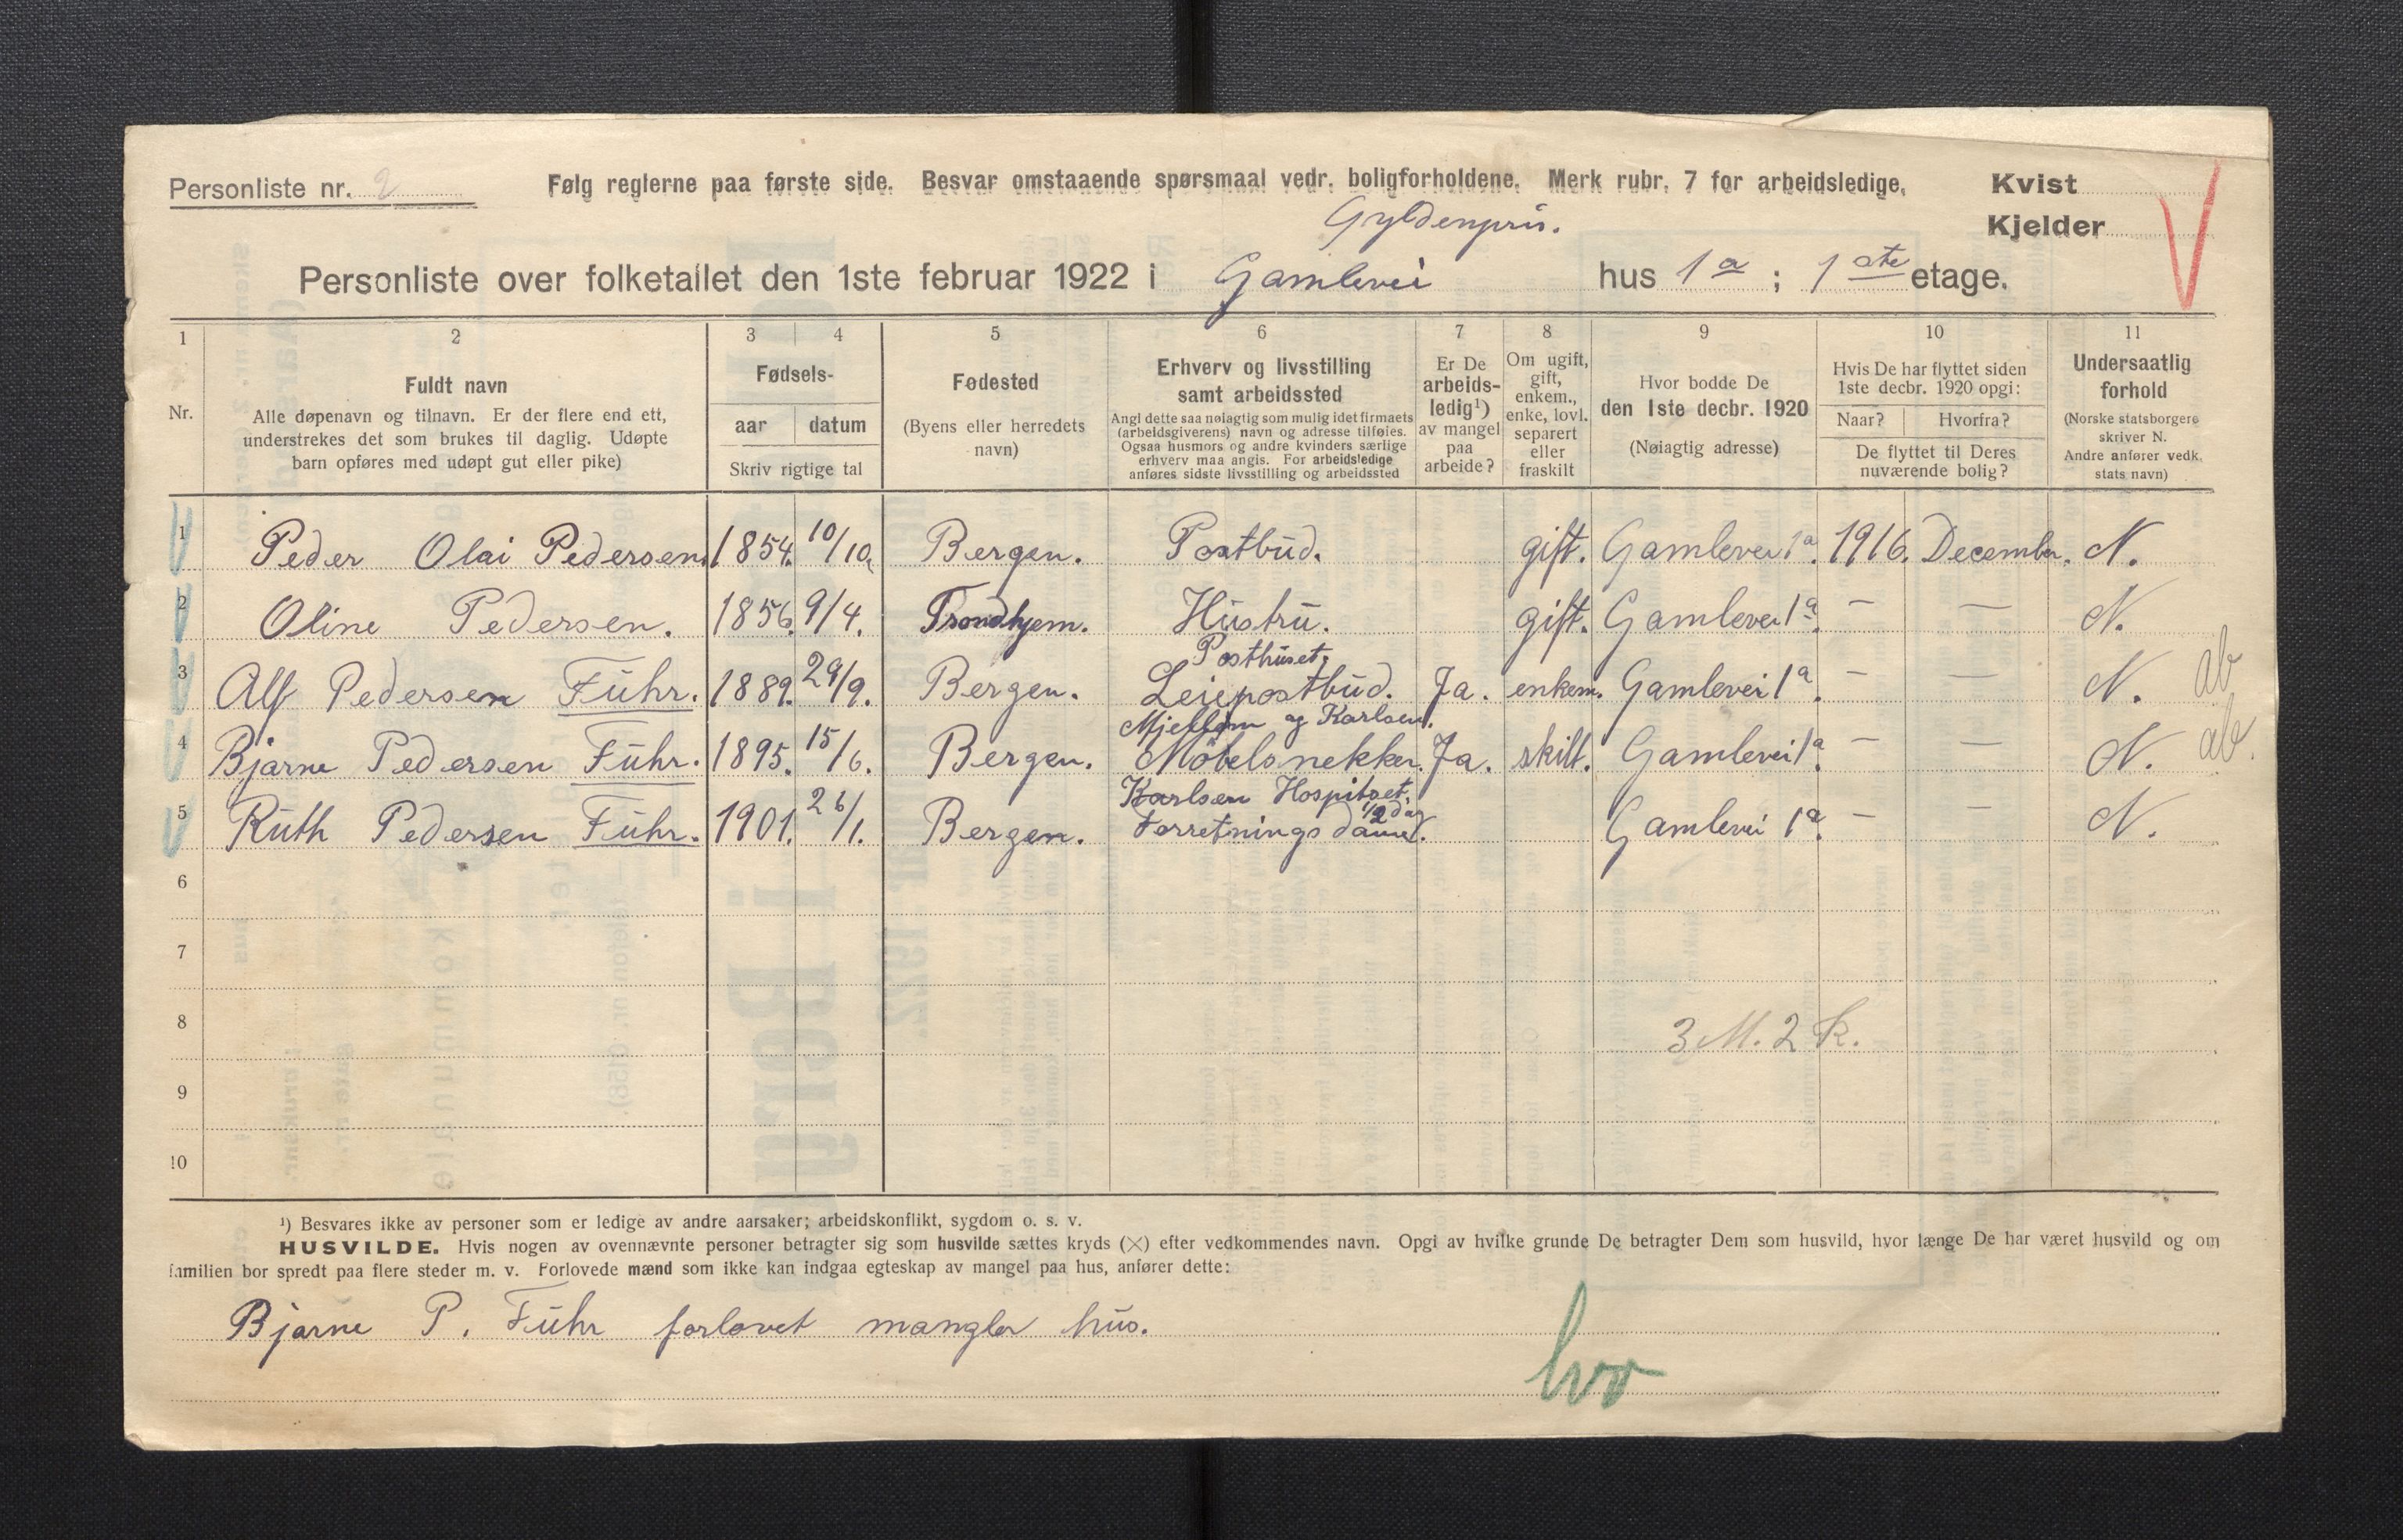 Personliste nr. 2
Følg reglerne paa første side. Besvar omstaaende spørsmaal vedr. boligforholdene. Merk rubr. 7 for arbeidsledige.
Kvist
Kjelder
Gyldenpris.
Personliste over folketallet den 1ste februar 1922 i Gamlevei hus 1a ; 1ste etage.
1 2 3 4 5 6 7 8 9 10 11
Nr.
Fuldt navn
Alle døpenavn og tilnavn. Er der flere end ett,
understrekes det som brukes til daglig. Udøpte
barn opføres med udøpt gut eller pike)
Fødsels-
aar datum
Skriv rigtige tal
Fødested
(Byens eller herredets
navn)
Erhverv og livsstilling
samt arbeidssted
Angi dette saa nøiagtig som mulig idet firmaets
(arbeidsgiverens) navn og adresse tilføies.
Ogsaa husmors og andre kvinders særlige
erhverv maa angis. For arbeidsledige
anføres sidste livsstilling og arbeidssted
Er De
arbeids-
ledig¹)
av mangel
paa
arbeide?
Om ugift,
gift,
enkem.,
enke, lovl.
separert
eller
fraskilt
Hvor bodde De
den 1ste decbr. 1920
(Nøiagtig adresse)
Hvis De har flyttet siden
1ste decbr. 1920 opgi:
Naar? Hvorfra?
De flyttet til Deres
nuværende bolig?
Undersaatlig
forhold
(Norske statsborgere
skriver N.
Andre anfører vedk.
stats navn)
1 Peder Olai Pedersen. 1854. 10/10. Bergen. Postbud. gift. Gamlevei 1a. 1916. December. N.
2 Oline Pedersen. 1856. 9/4. Trondhjem. Hustru. gift. Gamlevei 1a. — — N.
Posthuset.
3 Alf Pedersen Führ. 1889. 29/9. Bergen. Leiepostbud. Ja. enkem. Gamlevei 1a. — — N. ab
Mjellem og Karlsen.
4 Bjarne Pedersen Führ. 1895. 15/6. Bergen. Möbelsnekker. Ja. skilt. Gamlevei 1a. — — N. ab.
Karlsen Hospitset.
1/2 dag
5 Ruth Pedersen Führ. 1901. 26/1. Bergen. Forretningsdame. Gamlevei 1a. — — N.
6
7
8 3 M. 2 K.
9
10
¹) Besvares ikke av personer som er ledige av andre aarsaker; arbeidskonflikt, sygdom o. s. v.
HUSVILDE. Hvis nogen av ovennævnte personer betragter sig som husvilde sættes kryds (×) efter vedkommendes navn. Opgi av hvilke grunde De betragter Dem som husvild, hvor længe De har været husvild og om
familien bor spredt paa flere steder m. v. Forlovede mænd som ikke kan indgaa egteskap av mangel paa hus, anfører dette:
Bjarne P. Führ forlovet mangler hus.